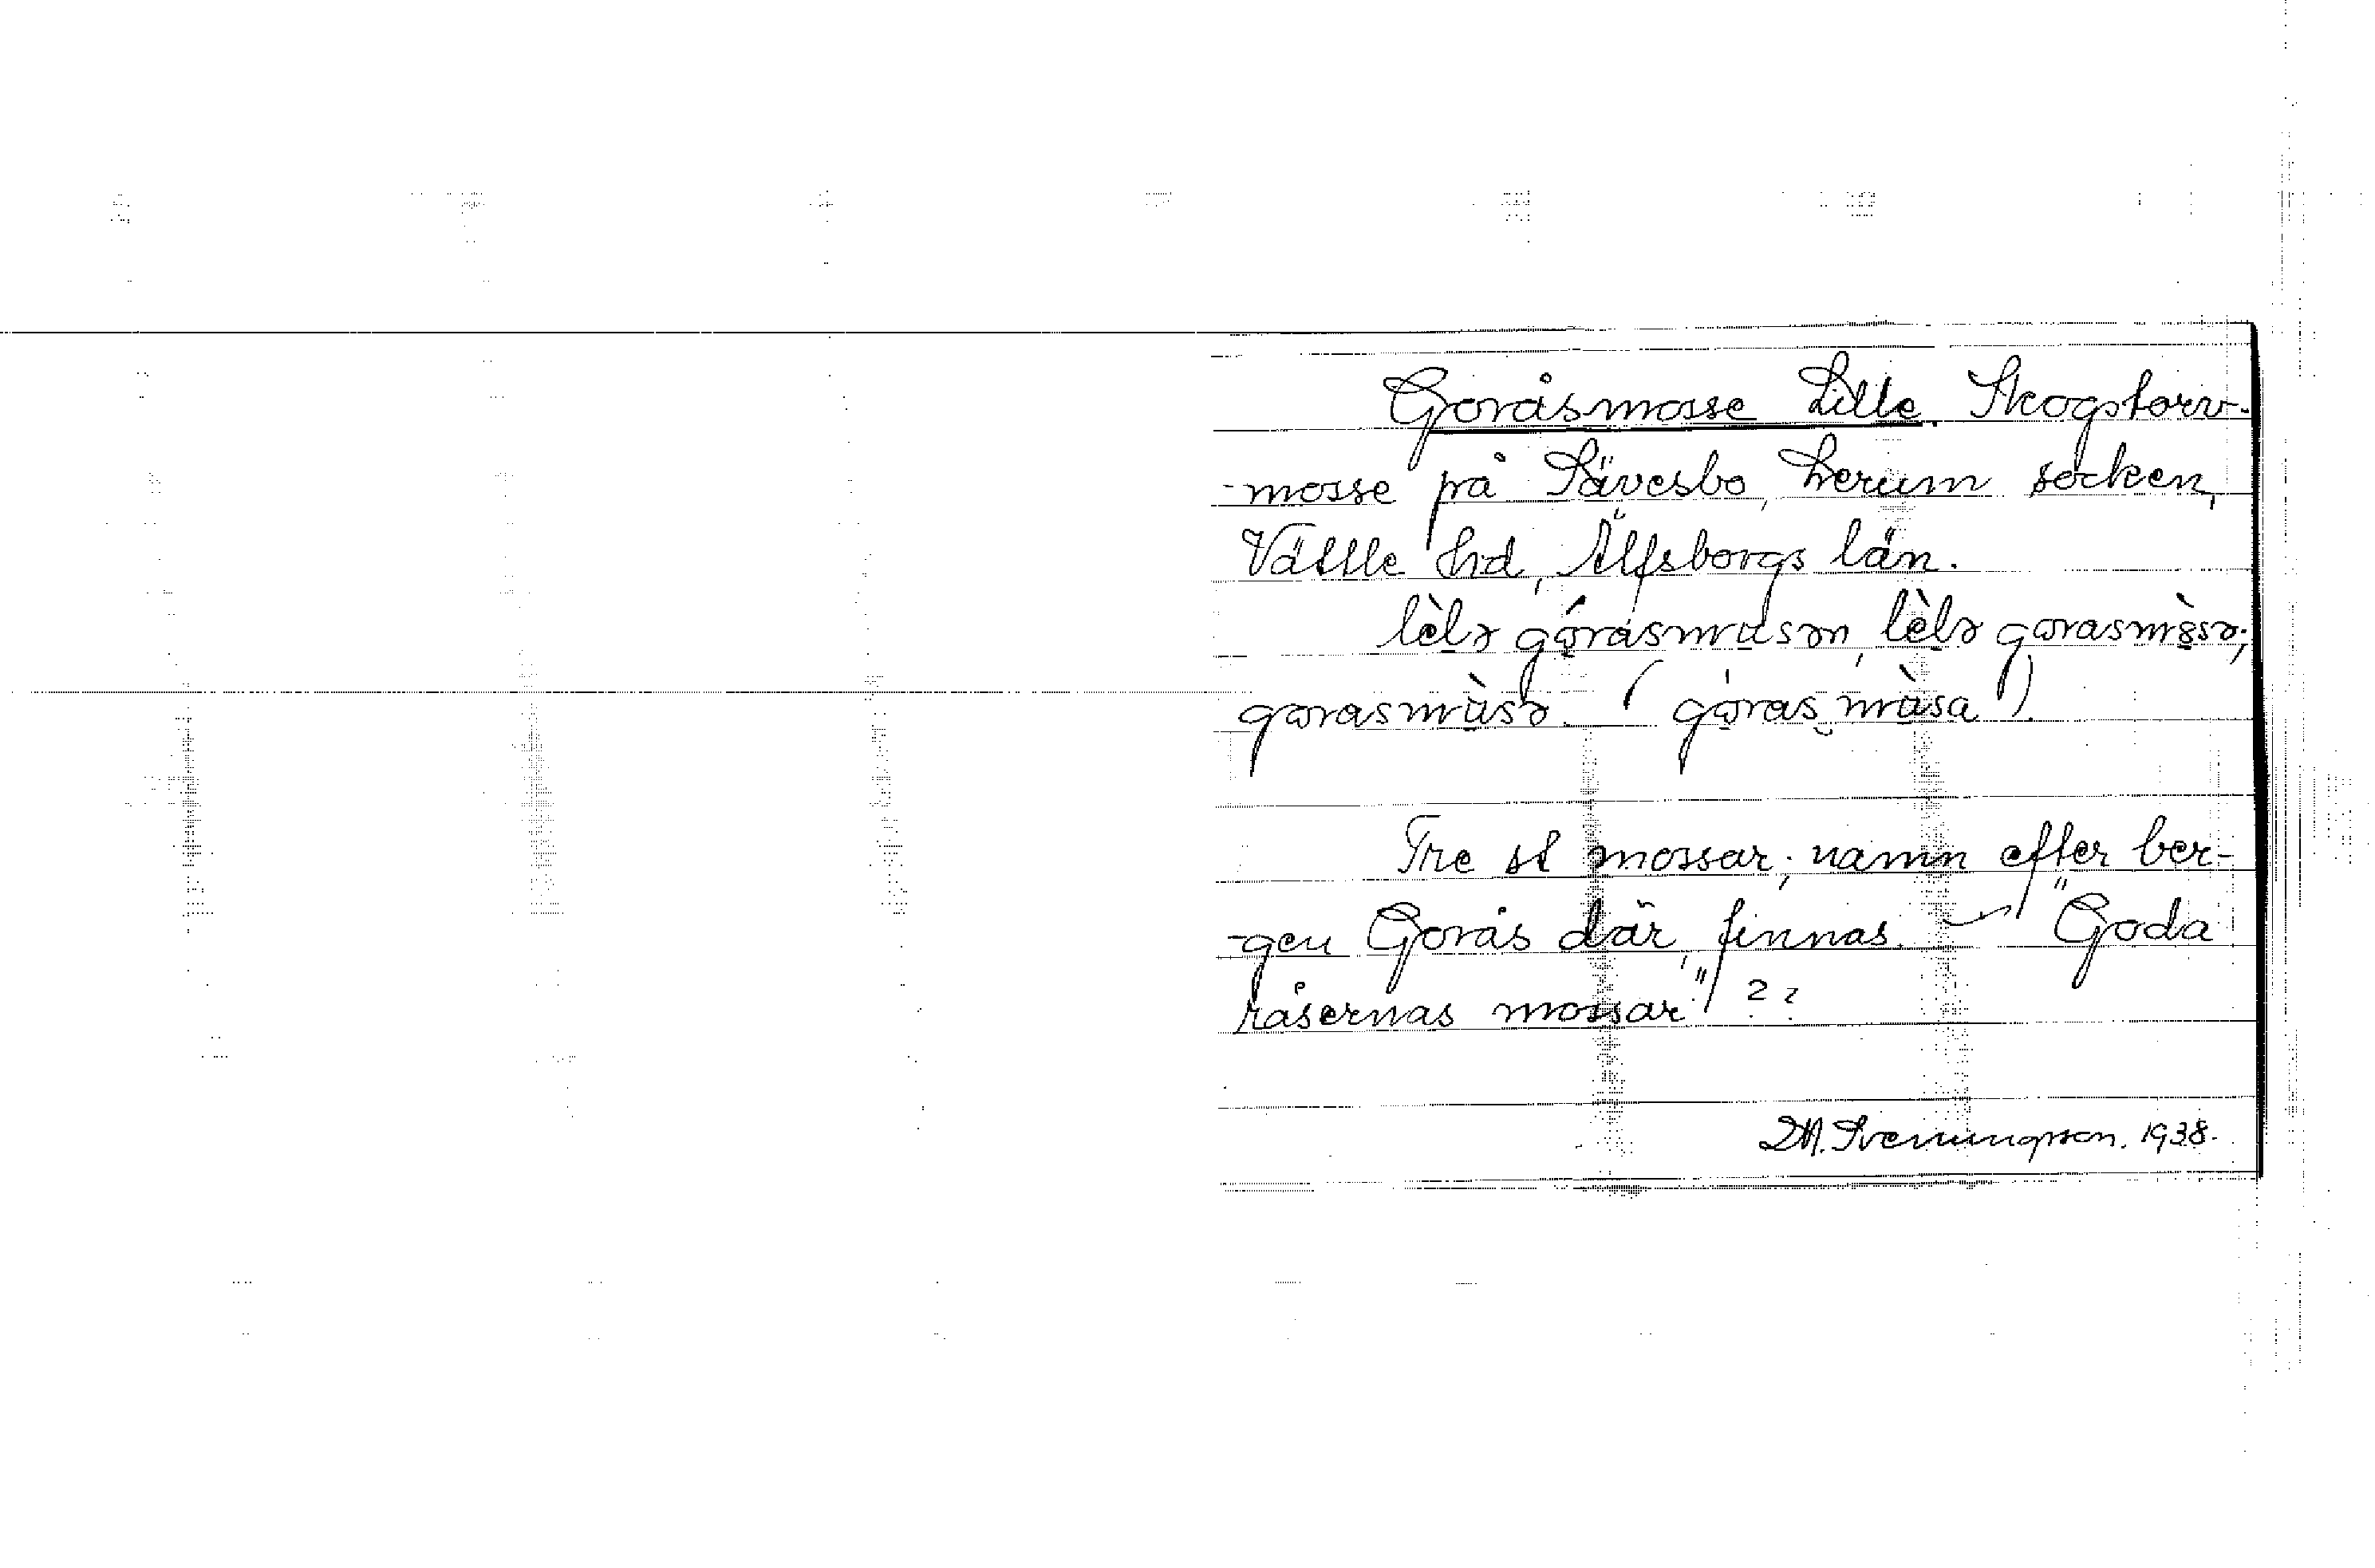 Goråsmosse Lille. Skogstorv-
-mosse på Sävesbo, Lerum socken,
Vättle hd, Älfsborgs län.
lèlə górásmusən, lèlə gorasmùsə;
gorasmùsə. (góras mùsa).
Tre st mossar; namn efter ber-
-gen Gorås där finnas. — "Goda
råsernas mossar"/ ? ?
Svenningsson. 1938.